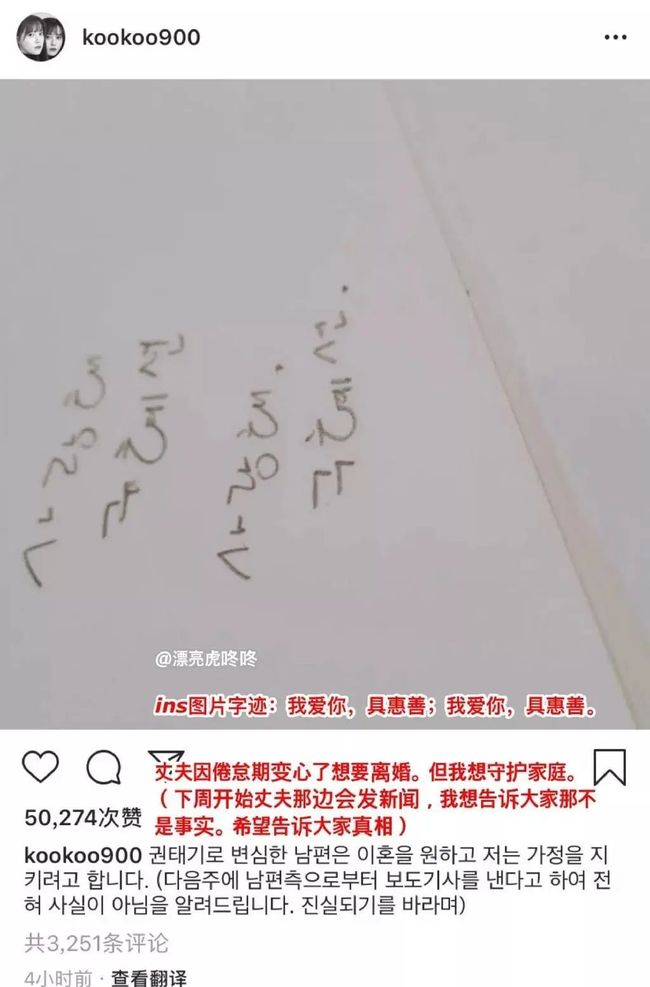 kookoo900
@漂亮虎咚咚
ins图片字迹：我爱你，具惠善；我爱你，具惠善。
丈夫因倦怠期变心了想要离婚。但我想守护家庭。
（下周开始丈夫那边会发新闻，我想告诉大家那不
是事实。希望告诉大家真相）
50,274次赞
kookoo900 권태기로 변심한 남편은 이혼을 원하고 저는 가정을 지
키려고 합니다. (다음주에 남편측으로부터 보도기사를 낸다고 하여 전
혀 사실이 아님을 알려드립니다. 진실되기를 바라며)
共3,251条评论
4小时前 · 查看翻译